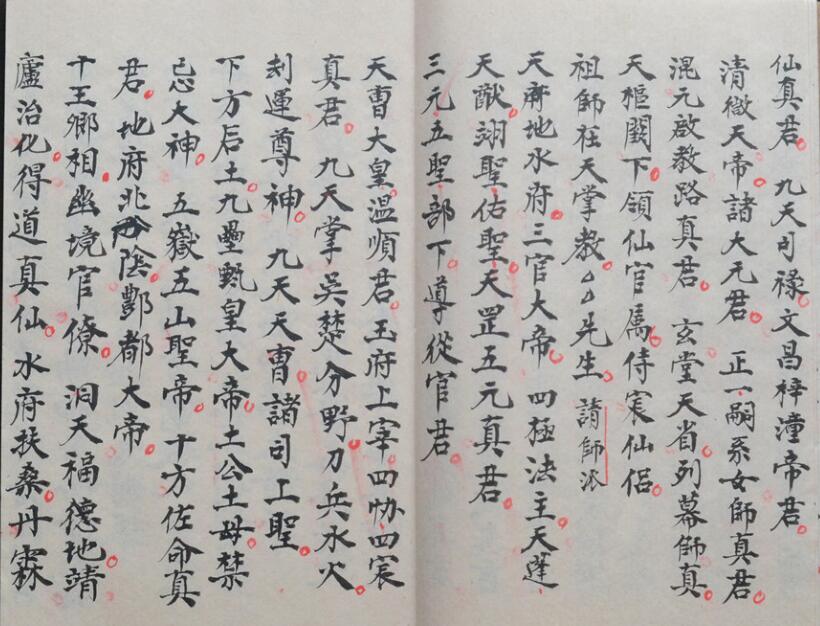 仙真君。九天司祿。文昌梓潼帝君。
清微天帝。諸大元君。正一嗣系女師真君。
混元啟教路真君。玄堂天省列幕師真。
天樞闕下。領仙官属侍宸仙侶。
祖師在天掌教。厶厶先生。請師派
天府地水府。三官大帝。四極法主。天蓬、
天猷翊聖。佑聖。天罡五元真君。
三元五聖。部下導從官君。
天曹大皇。温順君。玉府上宰。四协四宸
真君。九天掌吳楚分野。刀兵水火。
刦運尊神。九天天曹諸司上聖。
下方后土。九壘甄皇大帝。土公土母。禁
忌大神。五嶽五山聖帝。十方佐命真
君。地府北陰酆都大帝。
十王卿相。幽境官僚。洞天福德地。靖
廬治化。得道真仙。水府扶桑。丹霖